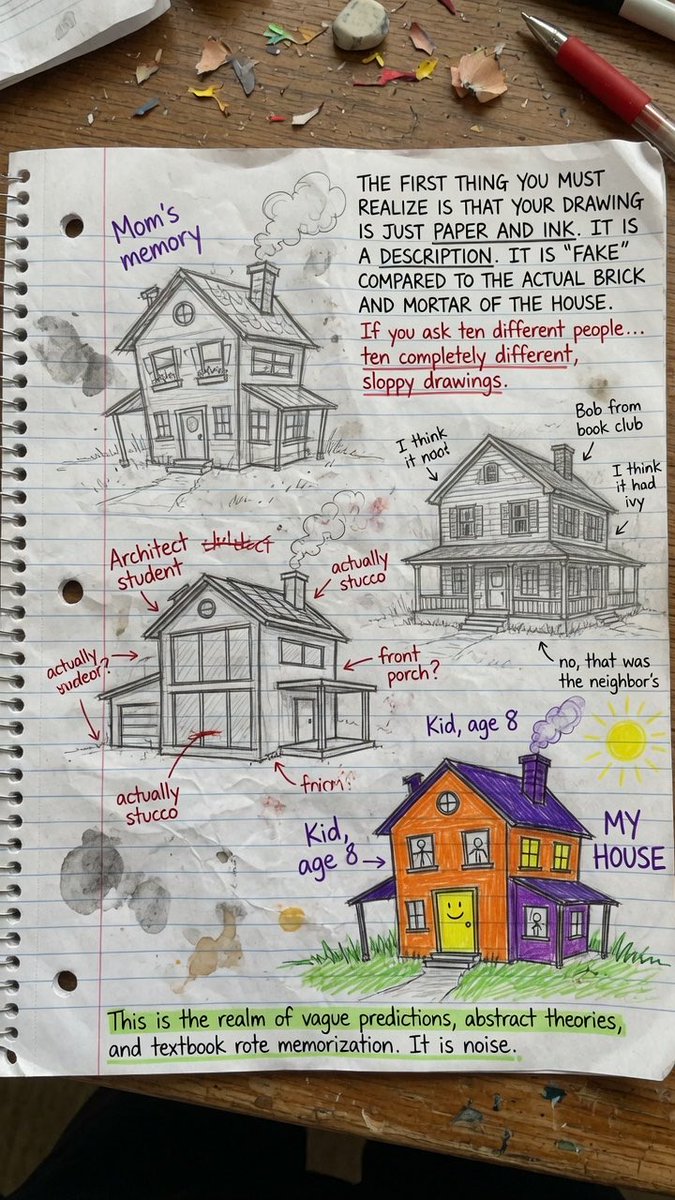 Mom's
memory
THE FIRST THING YOU MUST
REALIZE IS THAT YOUR DRAWING
IS JUST PAPER AND INK. IT IS
A DESCRIPTION. IT IS “FAKE”
COMPARED TO THE ACTUAL BRICK
AND MORTAR OF THE HOUSE.
If you ask ten different people...
ten completely different,
sloppy drawings.
I think
it noo!
Bob from
book club
I think
it had
ivy
no, that was
the neighbor's
Architect
student
actually
stucco
actually
front
porch?
actually
stucco
Kid, age 8
Kid,
age 8
MY
HOUSE
This is the realm of vague predictions, abstract theories,
and textbook rote memorization. It is noise.